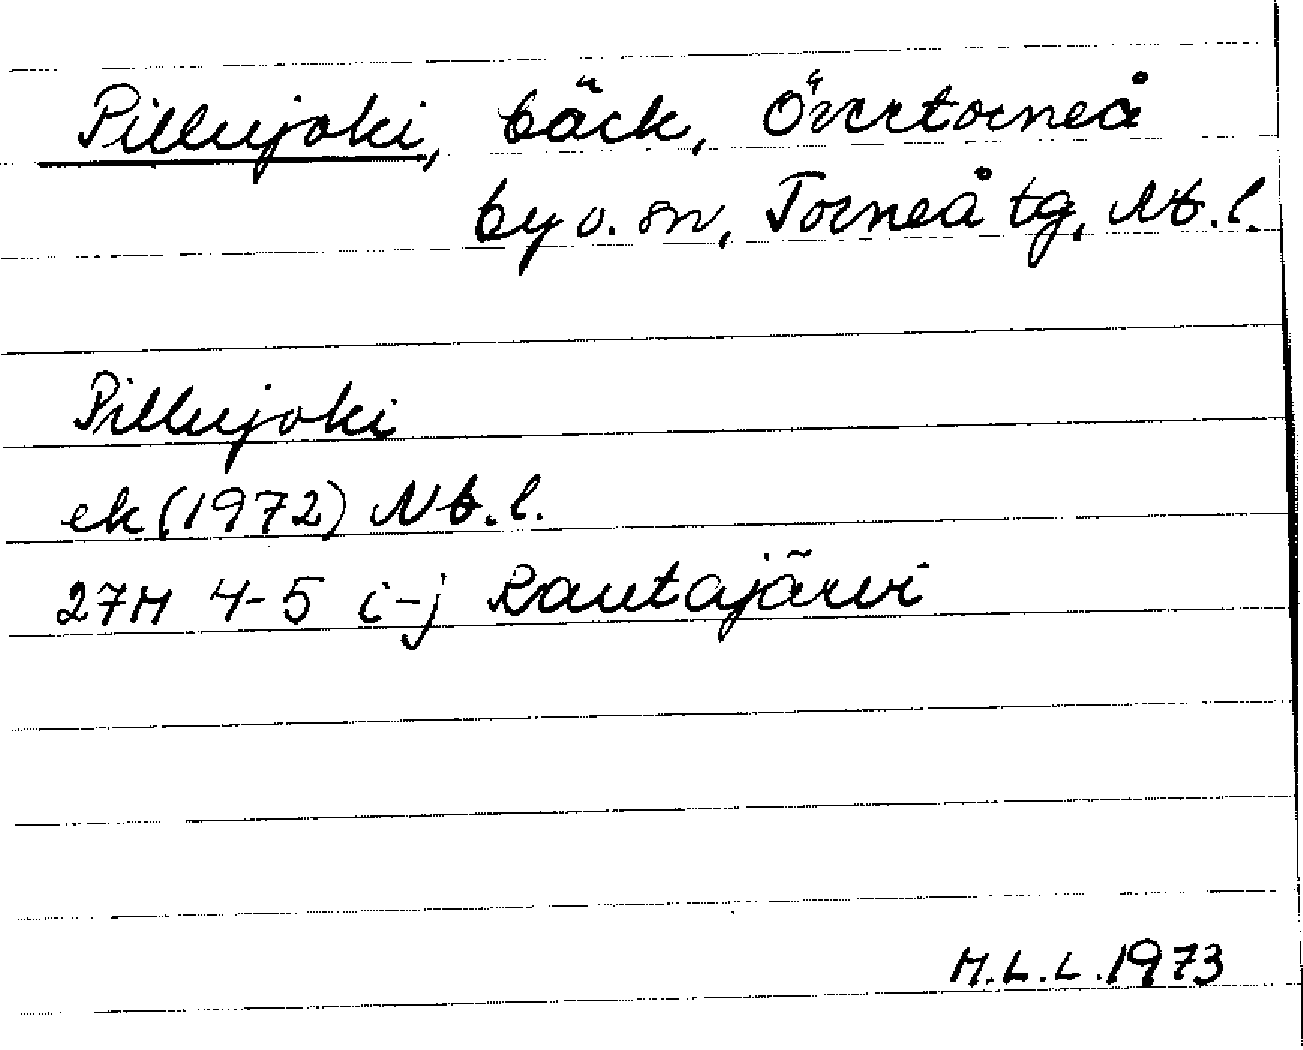 Pillujoki, bäck, Övertorneå
by o. sn, Torneå tg, Nb.l.
Pillujoki
ek (1972) Nb.l.
27M 4-5 i-j Rautajärvi
M.L.L. 1973